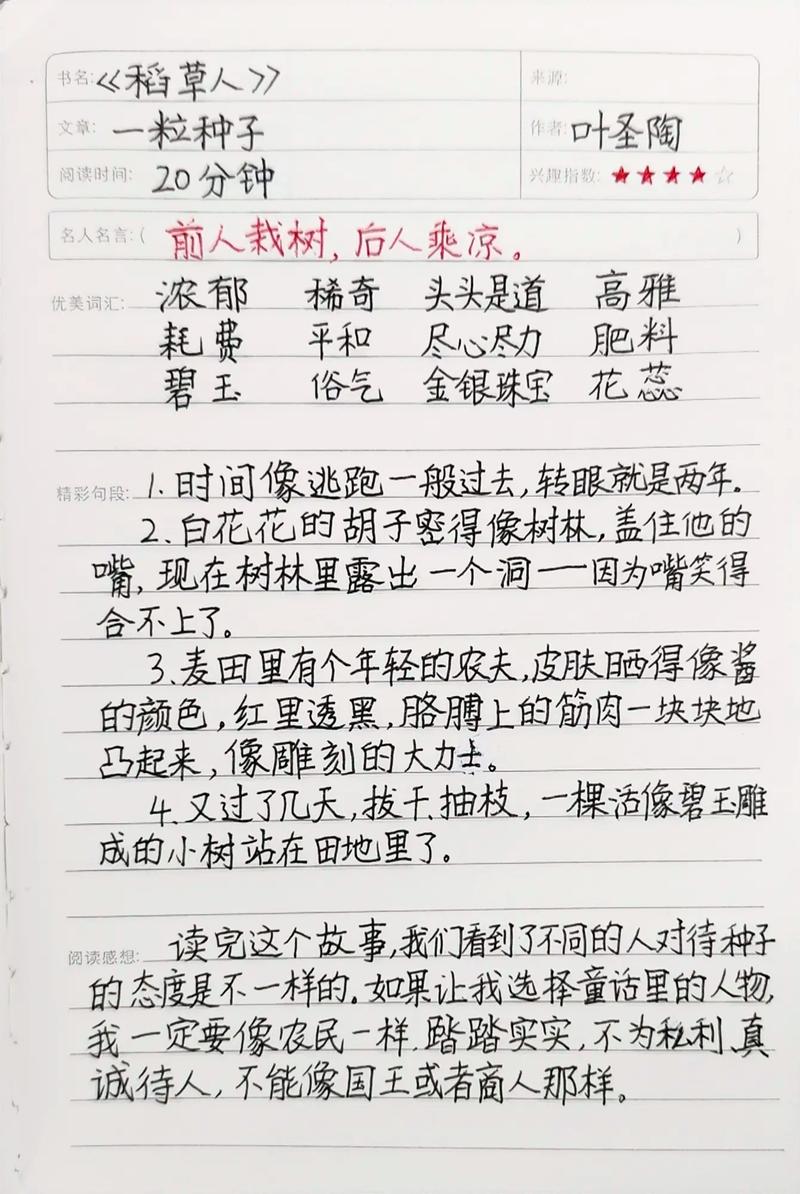 书名:《稻草人》 来源:
文章: 一粒种子 作者: 叶圣陶
阅读时间: 20分钟 兴趣指数: ★★★★☆
名人名言:( 前人栽树,后人乘凉。 )
优美词汇: 浓郁 稀奇 头头是道 高雅
耗费 平和 尽心尽力 肥料
碧玉 俗气 金银珠宝 花蕊
精彩句段: 1.时间像逃跑一般过去,转眼就是两年。
2.白花花的胡子密得像树林,盖住他的
嘴,现在树林里露出一个洞——因为嘴笑得
合不上了。
3.麦田里有个年轻的农夫,皮肤晒得像酱
的颜色,红里透黑,胳膊上的筋肉一块块地
凸起来,像雕刻的大力士。
4.又过了几天,拔干、抽枝,一棵活像碧玉雕
成的小树站在田地里了。
阅读感想: 读完这个故事,我们看到了不同的人对待种子
的态度是不一样的。如果让我选择童话里的人物,
我一定要像农民一样,踏踏实实,不为私利、真
诚待人,不能像国王或者商人那样。